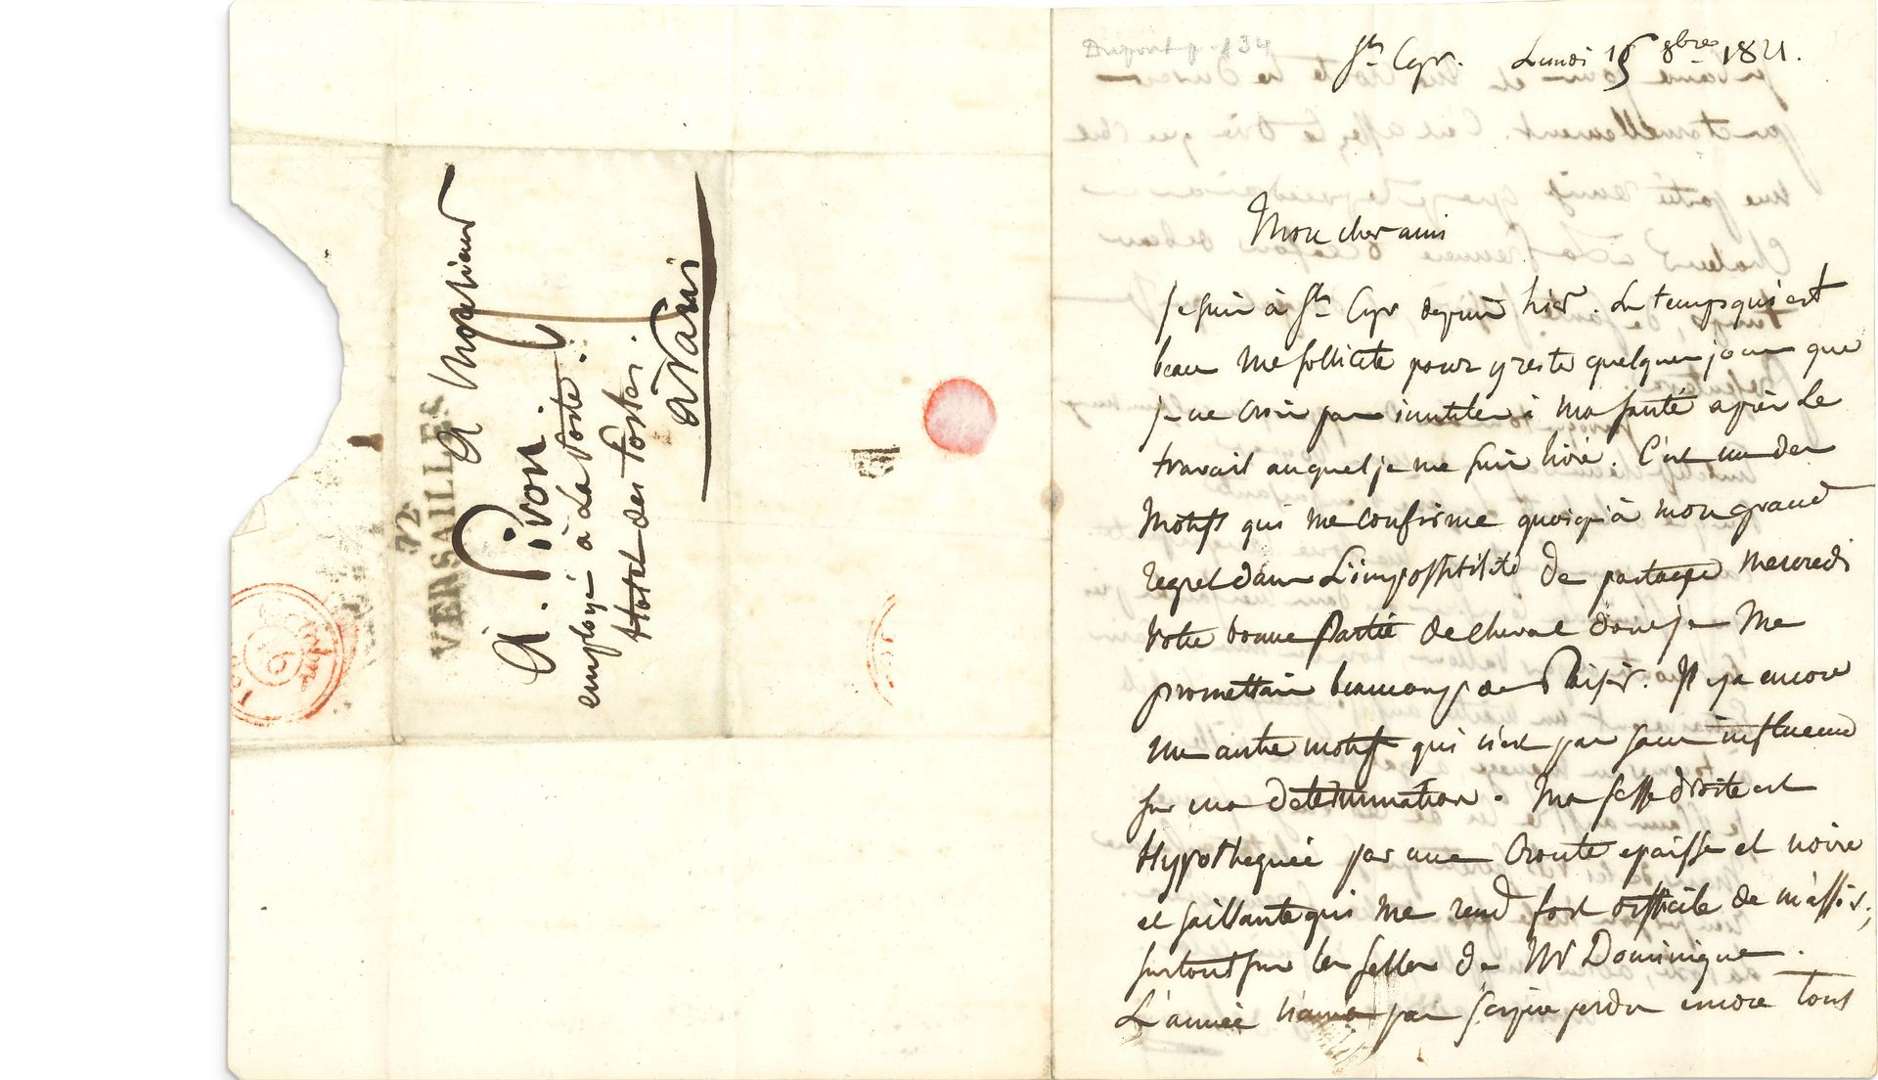 A Monsieur
A. Pivon.
employé à La Poste.
Hotel des Postes.
à Paris
72
VERSAILLES
St Cyr. Lundi 15 8bre 1821.
Mon cher ami
Je suis à St Cyr depuis hier. Le temps qui est
beau me sollicite pour y rester quelques jours que
je ne crois pas inutiles à ma santé après le
travail auquel je me suis livré. C'est un des
motifs qui me confirme quoiqu'à mon grand
regret dans L'impossibilité de partager Mercredi
votre bonne Partie de cheval dont je me
promettais beaucoup de Plaisir. Il y a encore
un autre motif qui n'est pas sans influence
sur ma détermination. Ma fesse droite est
Hypothequée par une Croute epaisse et noire
et saillante qui me rend fort difficile de m'assoir,
surtout sur les selles de Mr Dominique.
L'année n'aura pas perdu encore tous